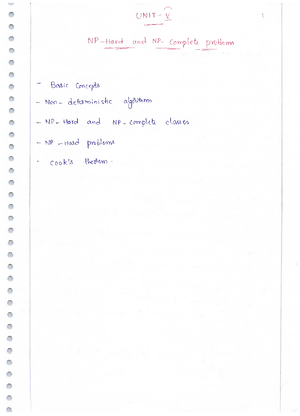 UNIT - V
1
NP-Hard and NP-Complete problems
- Basic Concepts
- Non-deterministic algorithms
- NP-Hard and NP-Complete classes
- NP-Hard problems
- Cook's theorem.